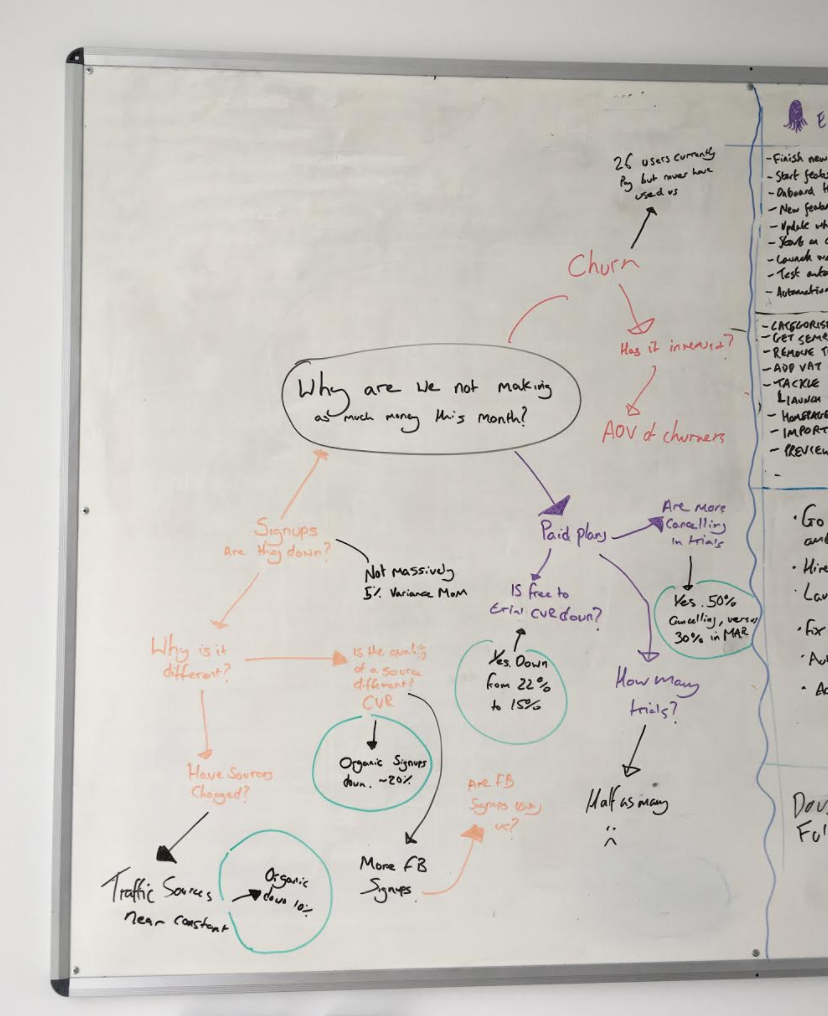 26 users currently
Pay but never have
used us
Churn
Has it increased?
AOV of churners
Why are we not making
as much money this month?
Signups
Are they down?
Not Massively
5% Variance MoM
Why is it
different?
Is the quality
of a source
different?
CVR
Organic Signups
down. ~20%
Have Sources
Changed?
Traffic Sources
near constant
Organic
down 10%
More FB
Signups.
Are FB
Signups using
us?
Paid plans
Are more
Cancelling
in trials
Yes. 50%
Cancelling, versus
30% in MAR
Is free to
trial CVR down?
Yes. Down
from 22%
to 15%
How many
trials?
Half as many
:(
E
- Finish new
- Start featu
- Onboard H
- New featur
- Update wh
- Start on
- Launch
- Test auto
- Automation
- CATEGORISE
- GET SEMR
- REMOVE T
- ADD VAT
- TACKLE
LAUNCH
- HOMEPAGE
- IMPORT
- PREVIEW
-
· Go
and
· Hire
· Lau
· Fix
· Au
· Ac
Dou
Ful